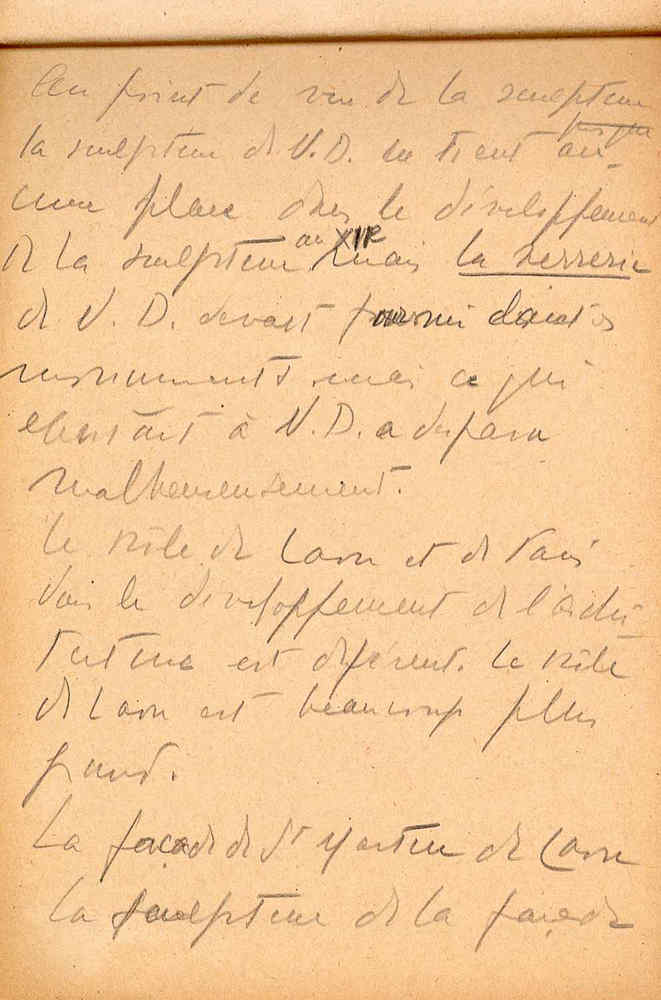 Au point de vue de la sculpture
la sculpture de N.D. ne tient au-
cune place dans le développement
de la sculpture au XIIe mais la verrerie
de N. D. devait fournir d'autres
monuments mais ce qui
existait à N.D. a disparu
malheureusement.
Le rôle de Laon et de Paris
dans le développement de l'archi
tecture est différent. Le rôle
de Laon est beaucoup plus
grand.
La façade de St Martin de Laon
La sculpture de la façade